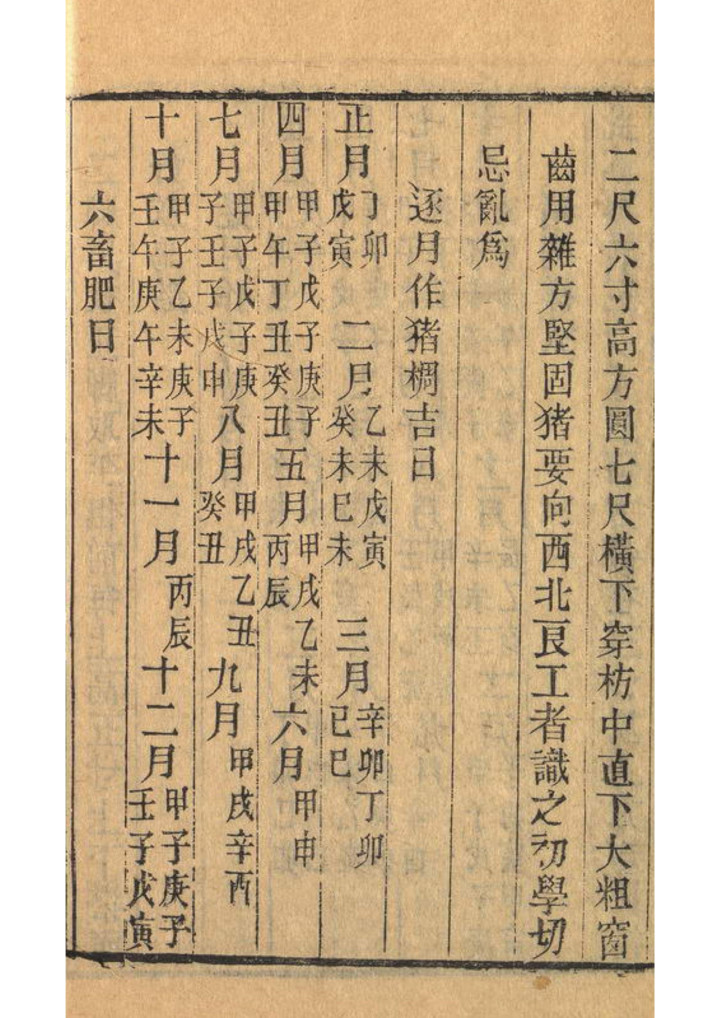 二尺六寸高方圓七尺橫下穿枋中直下大粗窗
齒用雜方堅固猪要向西北良工者識之初學切
忌亂爲
逐月作猪椆吉日
正月丁卯戊寅二月乙未戊寅癸未巳未三月辛卯丁卯巳巳
四月甲子戊子庚子甲午丁丑癸丑五月甲戌乙未丙辰六月甲申
七月甲子戊子庚子壬子戊申八月甲戌乙丑癸丑九月甲戌辛酉
十月甲子乙未庚子壬午庚午辛未十一月丙辰十二月甲子庚子壬子戊寅
六畜肥日